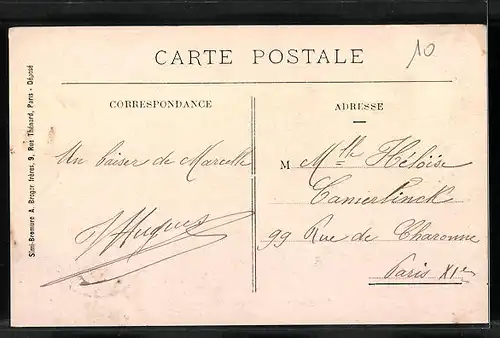 CARTE POSTALE
10
CORRESPONDANCE
ADRESSE
Un baiser de Marcelle
M Mlle Héloïse
Camerlinck
99 Rue de Charonne
Paris XIe
Simi-Bromure A. Breger frères, 9, Rue Thénard, Paris - Déposé